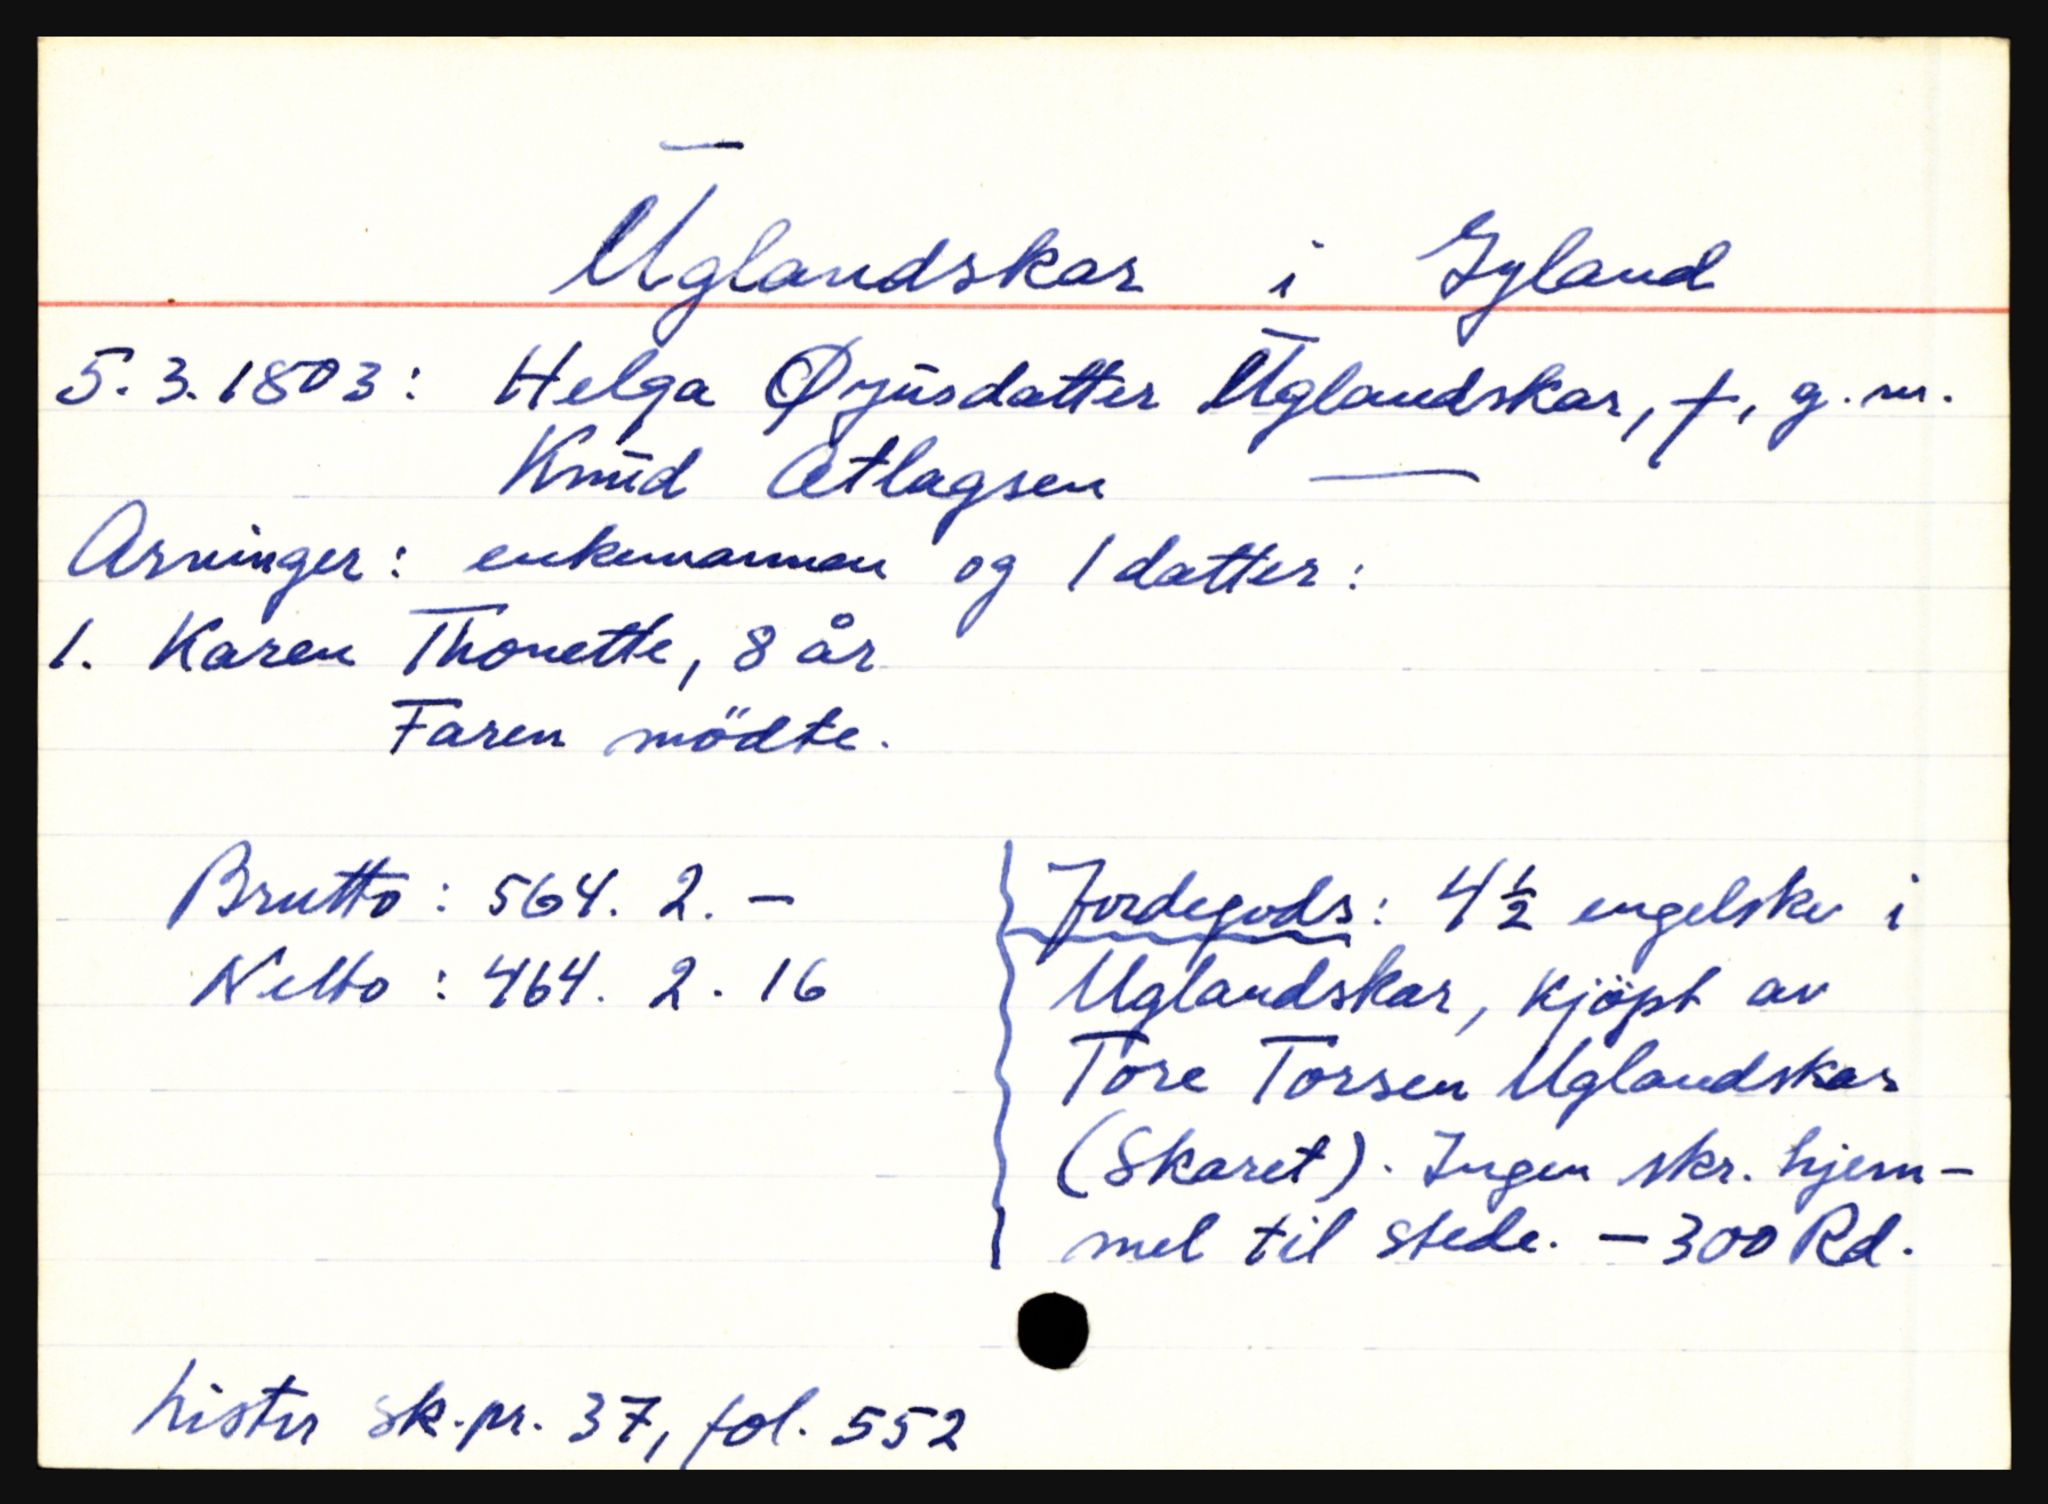 Uglandskar i Gyland
5.3.1803: Helga Øyusdatter Uglandskar, †, g.m.
Knud Atlagsen —
Arvinger: enkemannen og 1 datter:
1. Karen Thonette, 8 år
Faren mödte.
Brutto: 564. 2. –
Netto: 464. 2. 16
Jordegods: 4½ engelske i
Uglandskar, kjöpt av
Tore Torsen Uglandskar
(Skaret). Ingen skr. hjem-
mel til stede. — 300 Rd.
Lister sk.pr. 37, fol. 552